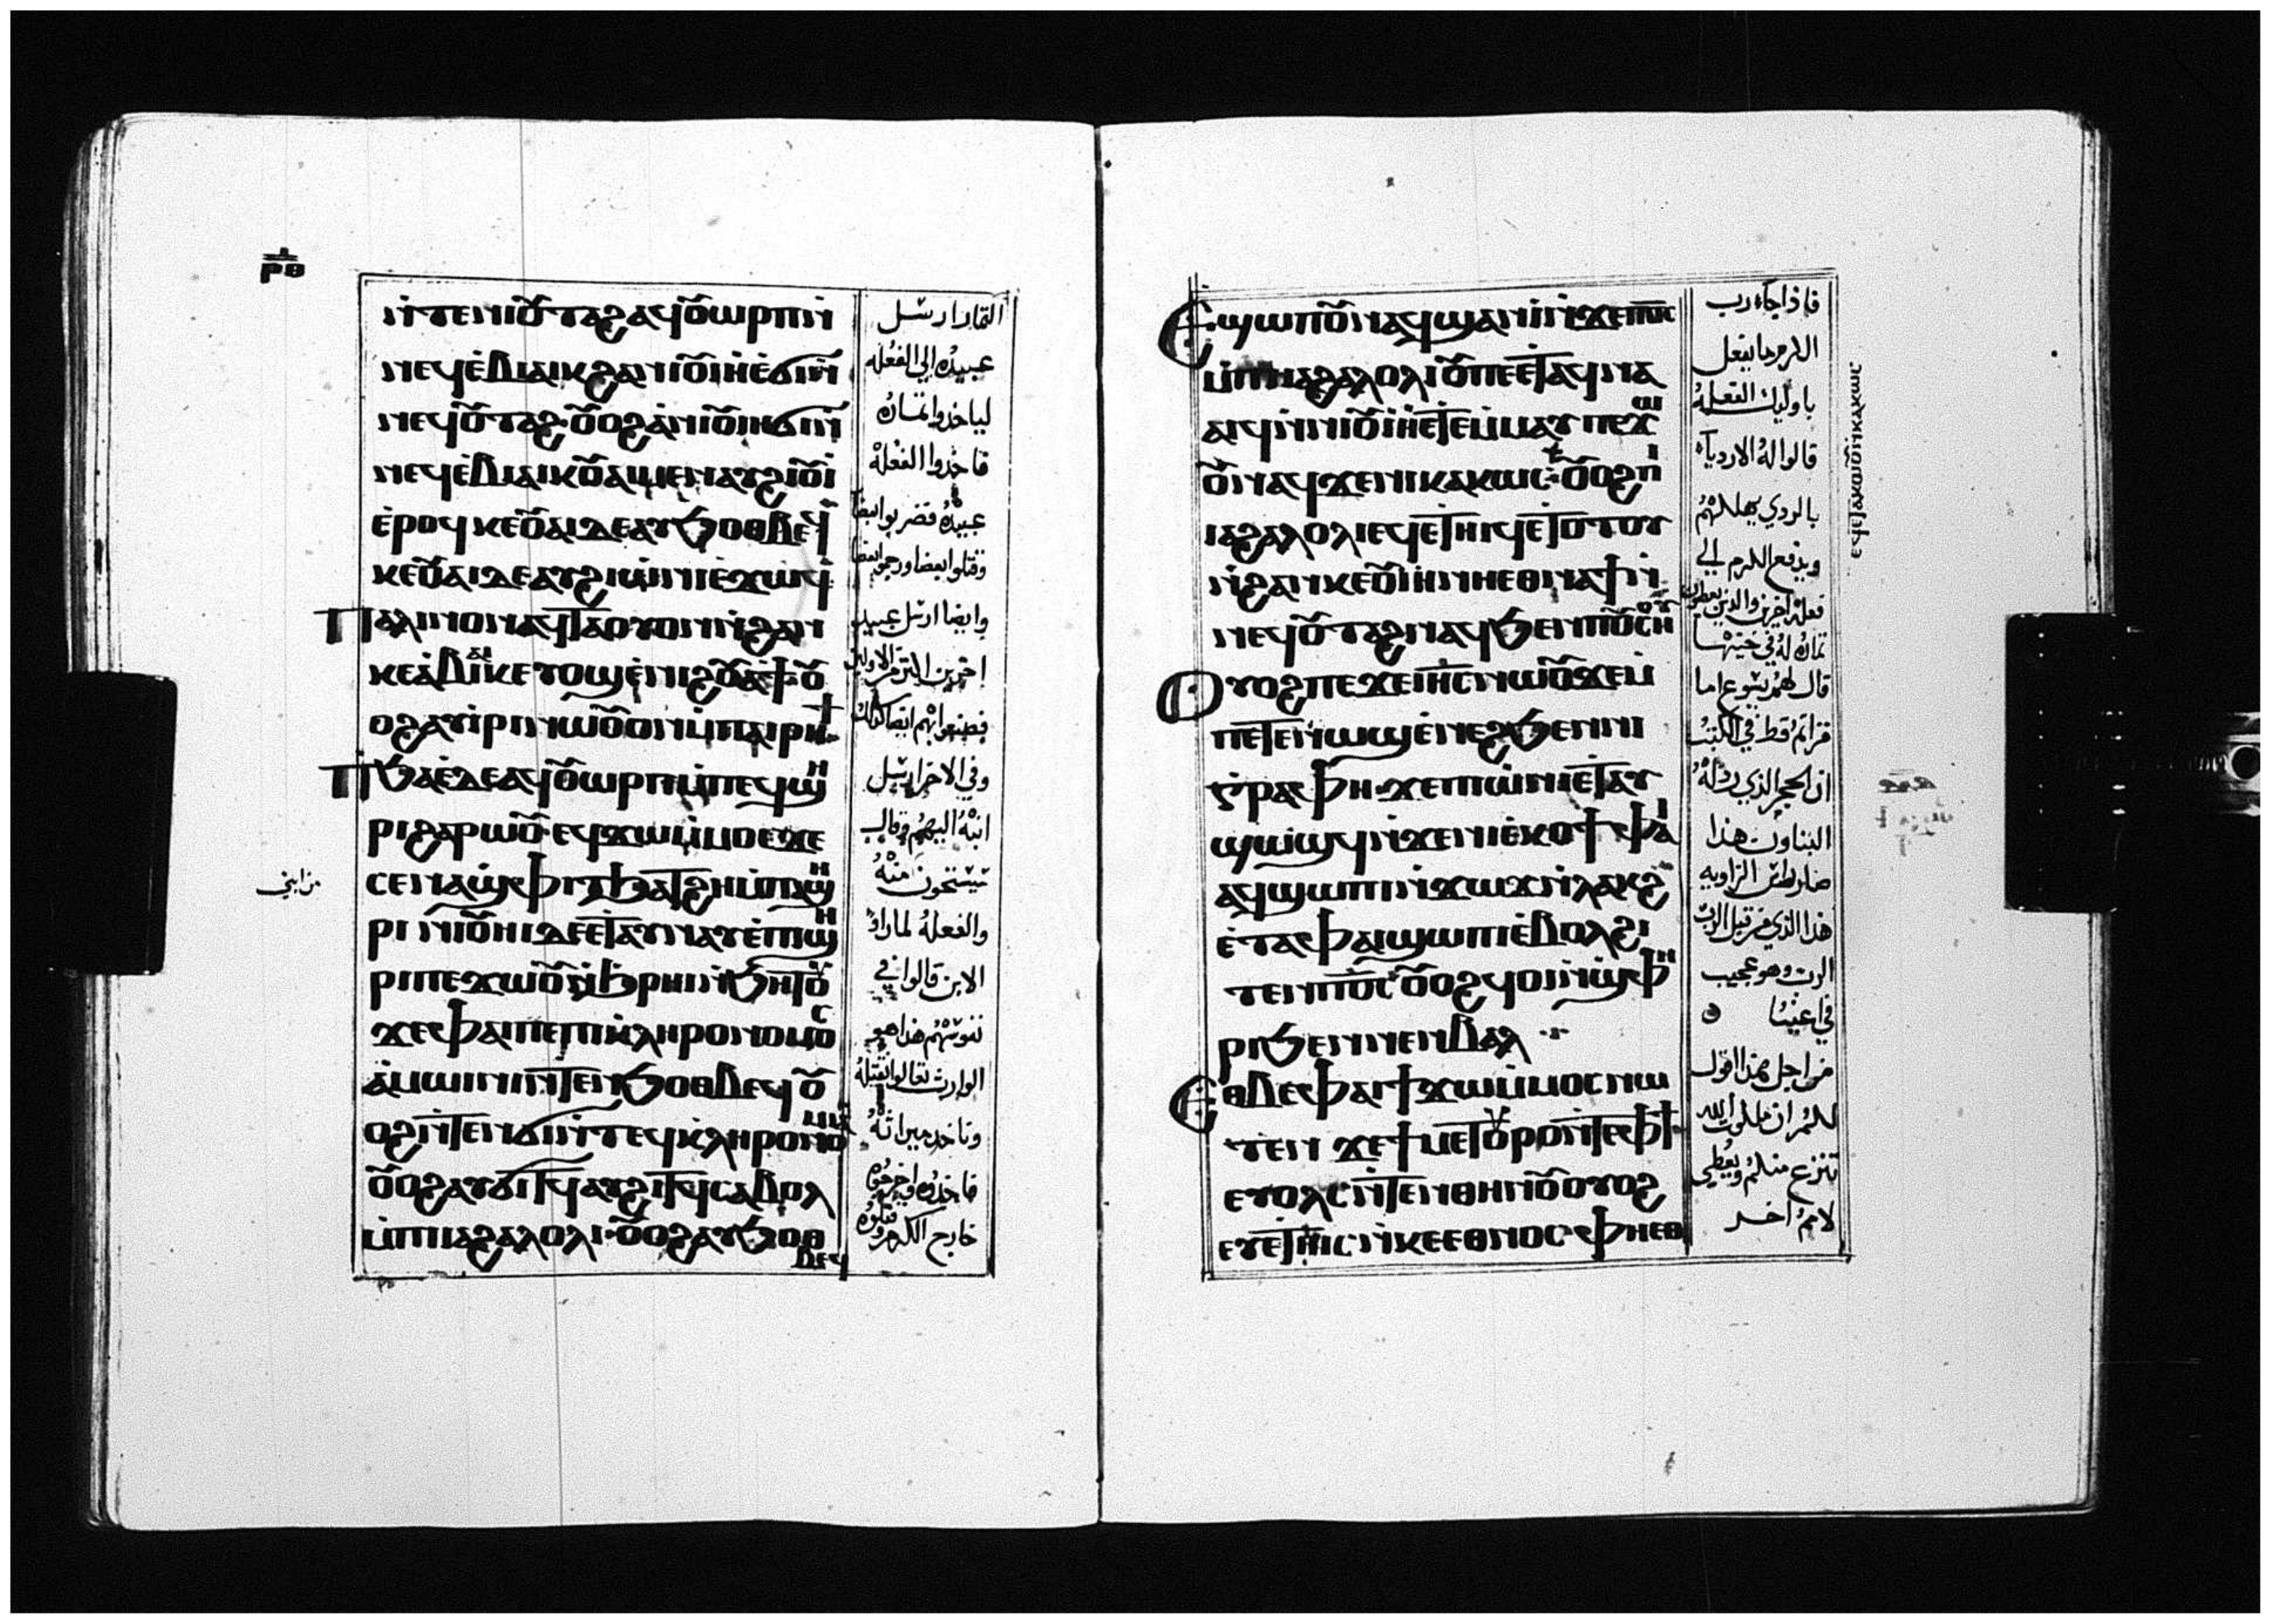 ⲣⲑ
ⲛ̀ⲧⲉⲛⲓⲟⲩⲧⲁϩ ⲁϥⲟⲩⲱⲣⲡ ⲛ̀
ⲛⲉϥⲉ̀ⲃⲓⲁⲓⲕ ϩⲁⲛⲓⲟⲩⲓⲏ ⲉ̀ϭⲓ ⲛ̀
ⲛⲉϥⲟⲩⲧⲁϩ ⲟⲩⲟϩ ⲁ̀ⲛⲓⲟⲩⲓⲏ ϭⲓ ⲛ̀
ⲛⲉϥⲉ̀ⲃⲓⲁⲓⲕ ⲟⲩⲁⲓ ⲙⲉⲛ ⲁⲩϩⲓⲟⲩⲓ̀
ⲉ̀ⲣⲟϥ ⲕⲉⲟⲩⲁⲓ ⲇⲉ ⲁⲩϧⲟⲑⲃⲉϥ
ⲕⲉⲟⲩⲁⲓ ⲇⲉ ⲁⲩϩⲓⲱ̀ⲛⲓ ⲉ̀ϫⲱϥ
Ⲡⲁⲗⲓⲛ ⲟⲛ ⲁϥⲧⲁⲟⲩⲟ ⲛ̀ϩⲁⲛ
ⲕⲉⲉ̀ⲃⲓⲁⲓⲕ ⲉⲩⲟϣ ⲉ̀ⲛⲓϩⲟⲩⲁϯ ⲟⲩ
ⲟϩ ⲁⲩⲓ̀ⲣⲓ ⲛⲱⲟⲩ ⲟⲛ ⲙ̀ⲡⲁⲓⲣⲏϯ
Ⲡϧⲁⲉ̀ ⲇⲉ ⲁϥⲟⲩⲱⲣⲡ ⲙ̀ⲡⲉϥϣⲏ
ⲣⲓ ϩⲁⲣⲱⲟⲩ ⲉϥϫⲱ ⲙ̀ⲙⲟⲥ ϫⲉ
ⲥⲉⲛⲁϣⲫⲓⲧ ϧⲁⲧϩⲏ ⲙ̀ⲡⲁϣⲏ
ⲣⲓ ⲛⲓⲟⲩⲓⲏ ⲇⲉ ⲉⲧⲁⲩⲛⲁⲩ ⲉ̀ⲡϣⲏ
ⲣⲓ ⲡⲉϫⲱⲟⲩ ⲛ̀ϧⲣⲏⲓ ⲛ̀ϧⲏⲧⲟⲩ
ϫⲉ ⲫⲁⲓ ⲡⲉ ⲡⲓⲕ̀ⲗⲏⲣⲟⲛⲟⲙⲟⲥ
ⲁ̀ⲙⲱⲓⲛⲓ ⲛ̀ⲧⲉⲛϧⲟⲑⲃⲉϥ ⲟⲩ
ⲟϩ ⲛ̀ⲧⲉⲛϭⲓ ⲛ̀ⲧⲉϥⲕ̀ⲗⲏⲣⲟⲛⲟⲙⲓⲁ
ⲟⲩⲟϩ ⲁⲩϭⲓⲧϥ ⲁⲩϩⲓⲧϥ ⲥⲁⲃⲟⲗ
ⲙ̀ⲡⲓⲓⲁϩⲁⲗⲟⲗⲓ ⲟⲩⲟϩ ⲁⲩϧⲟⲑ
ⲃⲉϥ
الثمار ارسل
عبيده الي الفعله
لياخدوا ثماره
فاخدوا الفعله
عبيده فضربوا بعضا
وقتلوا بعضا ورجموا بعضا
وايضا ارسل عبيد
اخرين اكثر من الاولين
فصنعوا بهم ايضا كذلك
وفي الاخر ارسل
ابنه اليهم وقال
يستحون منه
والفعله لما راوا
الابن قالوا في
نفوسهم هذا هو
الوارث تعالوا نقتله
وناخد ميراثه
فاخدوه واخرجوه
خارج الكرم وقتلوه
من ابني
Ⲉϣⲱⲡ ⲟⲩⲛ ⲁϥϣⲁⲛⲓ̀ ⲛ̀ϫⲉ ⲡⲟⲥ
ⲙ̀ⲡⲓⲓⲁϩⲁⲗⲟⲗⲓ ⲟⲩ ⲡⲉⲧⲉϥⲛⲁ
ⲁⲓϥ ⲛ̀ⲛⲓⲟⲩⲓⲏ ⲉⲧⲉⲙ̀ⲙⲁⲩ ⲡⲉϫⲱ
ⲟⲩ ⲛⲁϥ ϫⲉ ⲛⲓⲕⲁⲕⲱⲥ ⲟⲩⲟϩ ⲡⲓ
ⲓⲁϩⲁⲗⲟⲗⲓ ⲉϥⲉⲧⲏⲓϥ ⲉⲧⲟⲧⲟⲩ
ⲛ̀ϩⲁⲛⲕⲉⲟⲩⲓⲏ ⲛⲏⲉⲑⲛⲁϯ ⲛ̀
ⲛⲉϥⲟⲩⲧⲁϩ ⲛⲁϥ ϧⲉⲛ ⲡⲟⲩⲥⲏⲟⲩ
Ⲟⲩⲟϩ ⲡⲉϫⲉ ⲓⲏⲥ ⲛⲱⲟⲩ ϫⲉ ⲙ̀
ⲡⲉⲧⲉⲛⲱϣ ⲉ̀ⲛⲉϩ ϧⲉⲛ ⲛⲓ
ⲅ̀ⲣⲁⲫⲏ ϫⲉ ⲡⲓⲱ̀ⲛⲓ ⲉⲧⲁⲩ
ϣⲟϣϥ ⲛ̀ϫⲉ ⲛⲓⲉ̀ⲕⲟϯ ⲫⲁⲓ
ⲁϥϣⲱⲡⲓ ⲛ̀ϫⲱϫ ⲛ̀ⲗⲁⲕϩ
ⲉ̀ⲧⲁ ⲫⲁⲓ ϣⲱⲡⲓ ⲉ̀ⲃⲟⲗϩⲓ
ⲧⲉⲛ ⲡⲟⲥ ⲟⲩⲟϩ ϥⲟⲓ ⲛ̀ϣⲫⲏ
ⲣⲓ ϧⲉⲛ ⲛⲉⲛⲃⲁⲗ
Ⲉⲑⲃⲉ ⲫⲁⲓ ϯϫⲱ ⲙ̀ⲙⲟⲥ ⲛⲱ
ⲧⲉⲛ ϫⲉ ϯⲙⲉⲧⲟⲩⲣⲟ ⲛ̀ⲧⲉ ⲫϯ
ⲉⲩⲟⲗⲥ ⲛ̀ⲧⲉⲛ ⲑⲏⲛⲟⲩ ⲟⲩⲟϩ
ⲉⲩⲉ̀ⲧⲏⲓⲥ ⲛ̀ⲕⲉⲉⲑⲛⲟⲥ ⲫⲏⲉⲑ
فاذا جاء رب
الكرم ما يفعل
باوليك الفعله
قالوا له الاردياء
بالردي يهلكهم
ويدفع الكرم الي
فعله اخرين والذين يعطون
ثماره له في حينها
قال لهم يسوع اما
قراتم قط في الكتب
ان الحجر الذي رذله
البناون هذا
صار راس الزاويه
هذا الذي من قبل الرب
الرب وهو عجيب
في اعيننا
من اجل هذا اقول
لكم ان ملكوت الله
تنزع منكم ويعطي
لامم اخر
ⲉϥⲉⲧⲁⲕⲱⲟⲩ ⲛ̀ⲕⲁⲕⲱⲥ